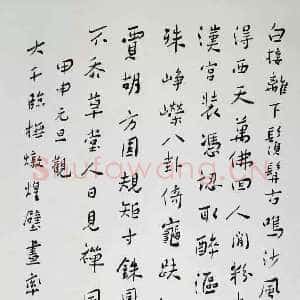 白接離下鬚髯古鳴沙風
得西天萬佛回人間粉
漢宮裝憑君取醉漚
珠崢嶸八卦倚龜趺
賈胡方圓規矩寸銖
不草堂人日見禪
甲申元旦觀
大千臨橅燉煌壁畫率
Shufawang.CN